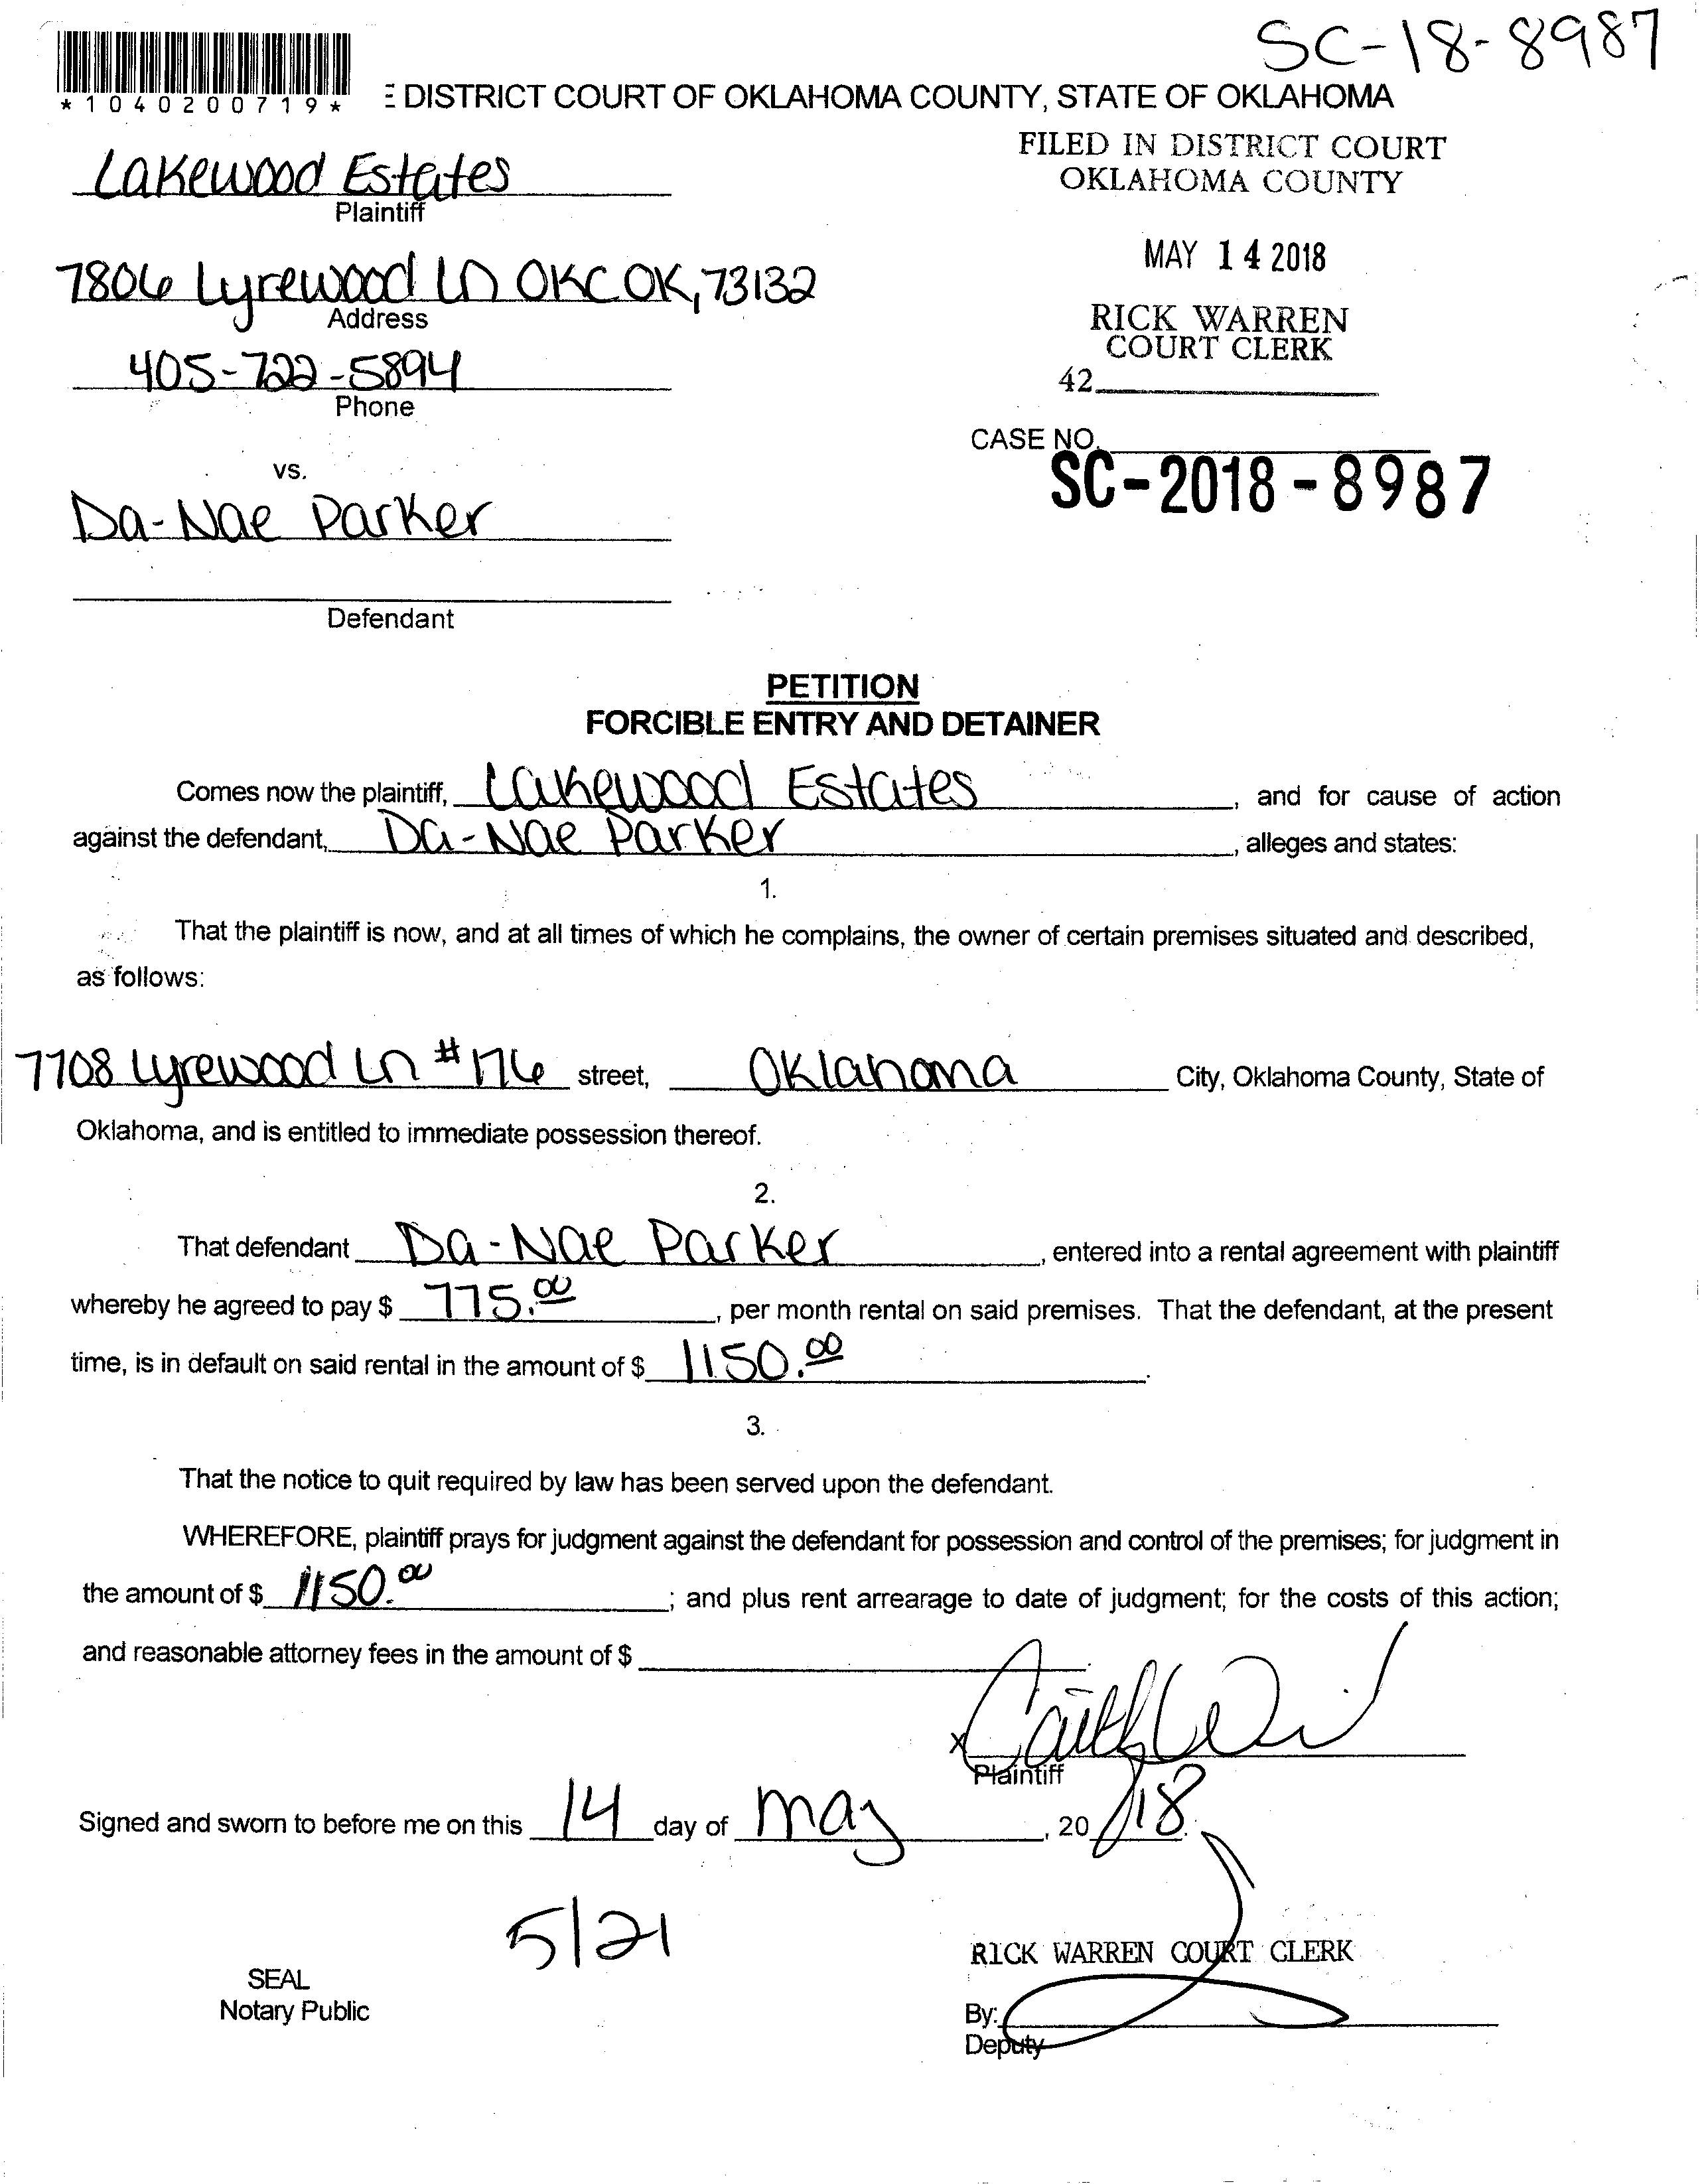 SC-18-8987
*1040200719*
DISTRICT COURT OF OKLAHOMA COUNTY, STATE OF OKLAHOMA
FILED IN DISTRICT COURT
OKLAHOMA COUNTY
Lakewood Estates
Plaintiff
MAY 14 2018
7806 Lyrewood Ln OKC OK, 73132
Address
RICK WARREN
COURT CLERK
405-722-5894
Phone
42
CASE NO.
SC-2018-8987
vs.
Da-Nae Parker
Defendant
PETITION
FORCIBLE ENTRY AND DETAINER
Comes now the plaintiff, Lakewood Estates, and for cause of action
against the defendant, Da-Nae Parker, alleges and states:
1.
That the plaintiff is now, and at all times of which he complains, the owner of certain premises situated and described,
as follows:
7708 Lyrewood Ln #176 street, Oklahoma City, Oklahoma County, State of
Oklahoma, and is entitled to immediate possession thereof.
2.
That defendant Da-Nae Parker, entered into a rental agreement with plaintiff
whereby he agreed to pay $ 775.00, per month rental on said premises. That the defendant, at the present
time, is in default on said rental in the amount of $ 1150.00.
3.
That the notice to quit required by law has been served upon the defendant.
WHEREFORE, plaintiff prays for judgment against the defendant for possession and control of the premises; for judgment in
the amount of $ 1150.00; and plus rent arrearage to date of judgment; for the costs of this action;
and reasonable attorney fees in the amount of $
X
Plaintiff
Signed and sworn to before me on this 14 day of may, 20 18.
5/21
RICK WARREN COURT CLERK
SEAL
Notary Public
By:
Deputy